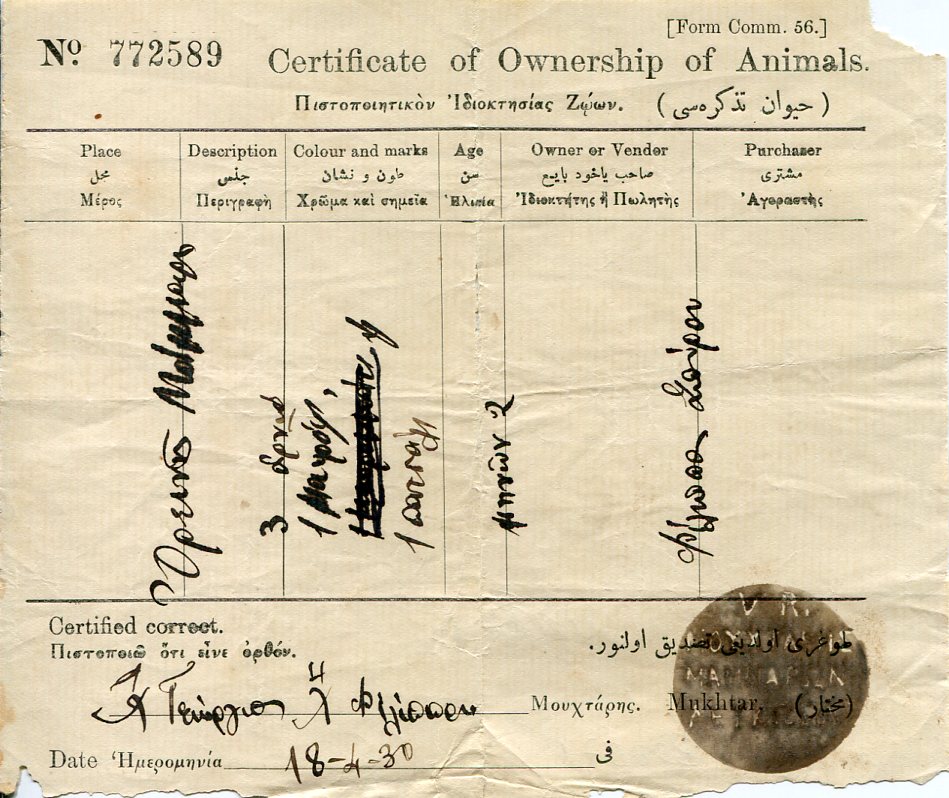 [Form Comm. 56.]
No. 772589 Certificate of Ownership of Animals.
Πιστοποιητικὸν Ἰδιοκτησίας Ζῴων. (حيوان تذكره‌سى)
Place Description Colour and marks Age Owner or Vendor Purchaser
محل جنس طون و نشان سن صاحب ياخود بايع مشترى
Μέρος Περιγραφὴ Χρῶμα καὶ σημεῖα Ἡλικία Ἰδιοκτήτης ἢ Πωλητὴς Ἀγοραστὴς
3 ἀρνιά
1
1
μηνῶν 2
Σπύρου
Certified correct.
Πιστοποιῶ ὅτι εἶνε ὀρθόν. طوغرى اولديغى تصديق اولنور.
Γεώργιος Χ Φιλίππου Μουχτάρης. Mukhtar. (مختار)
Date Ἡμερομηνία 18-4-30 فى
V R.